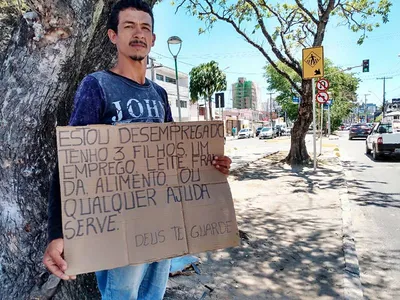 JOHN
ESTOU DESEMPREGADO
TENHO 3 FILHOS UM
EMPREGO LEITE FRAL
DA. ALIMENTO OU
QUALQUER AJUDA
SERVE.
DEUS TE GUARDE